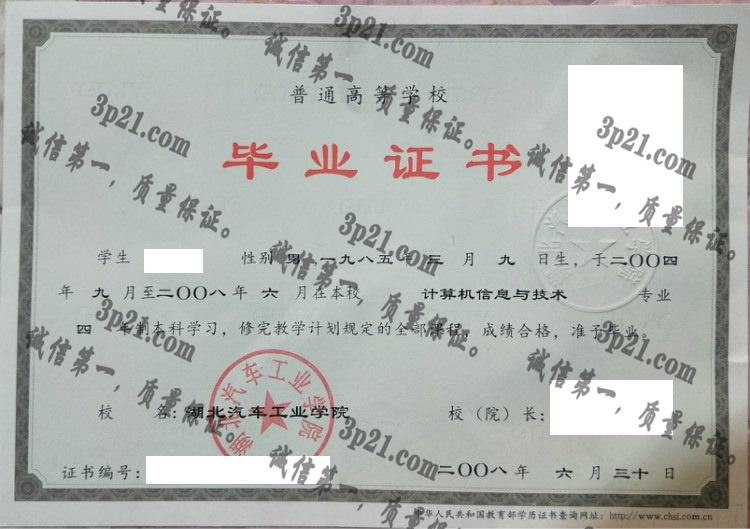 普通高等学校
毕业证书
学生 性别 男 一九八五年 三 月 九 日生，于二〇〇四
年 九 月至二〇〇八年 六 月在本校 计算机信息与技术 专业
四 年制本科学习，修完教学计划规定的全部课程，成绩合格，准予毕业。
校 名：湖北汽车工业学院
校（院）长：
湖北汽车工业学院
证书编号：
二〇〇八年 六 月三十日
中华人民共和国教育部学历证书查询网址：http://www.chsi.com.cn
3p21.com
诚信第一，质量保证。
3p21.com
诚信第一，质量保证。
3p21.com
诚信第一，质量保证。
3p21.com
诚信第一，质量保证。
3p21.com
诚信第一，质量保证。
3p21.com
诚信第一，质量保证。
3p21.com
诚信第一，质量保证。
3p21.com
诚信第一，质量保证。